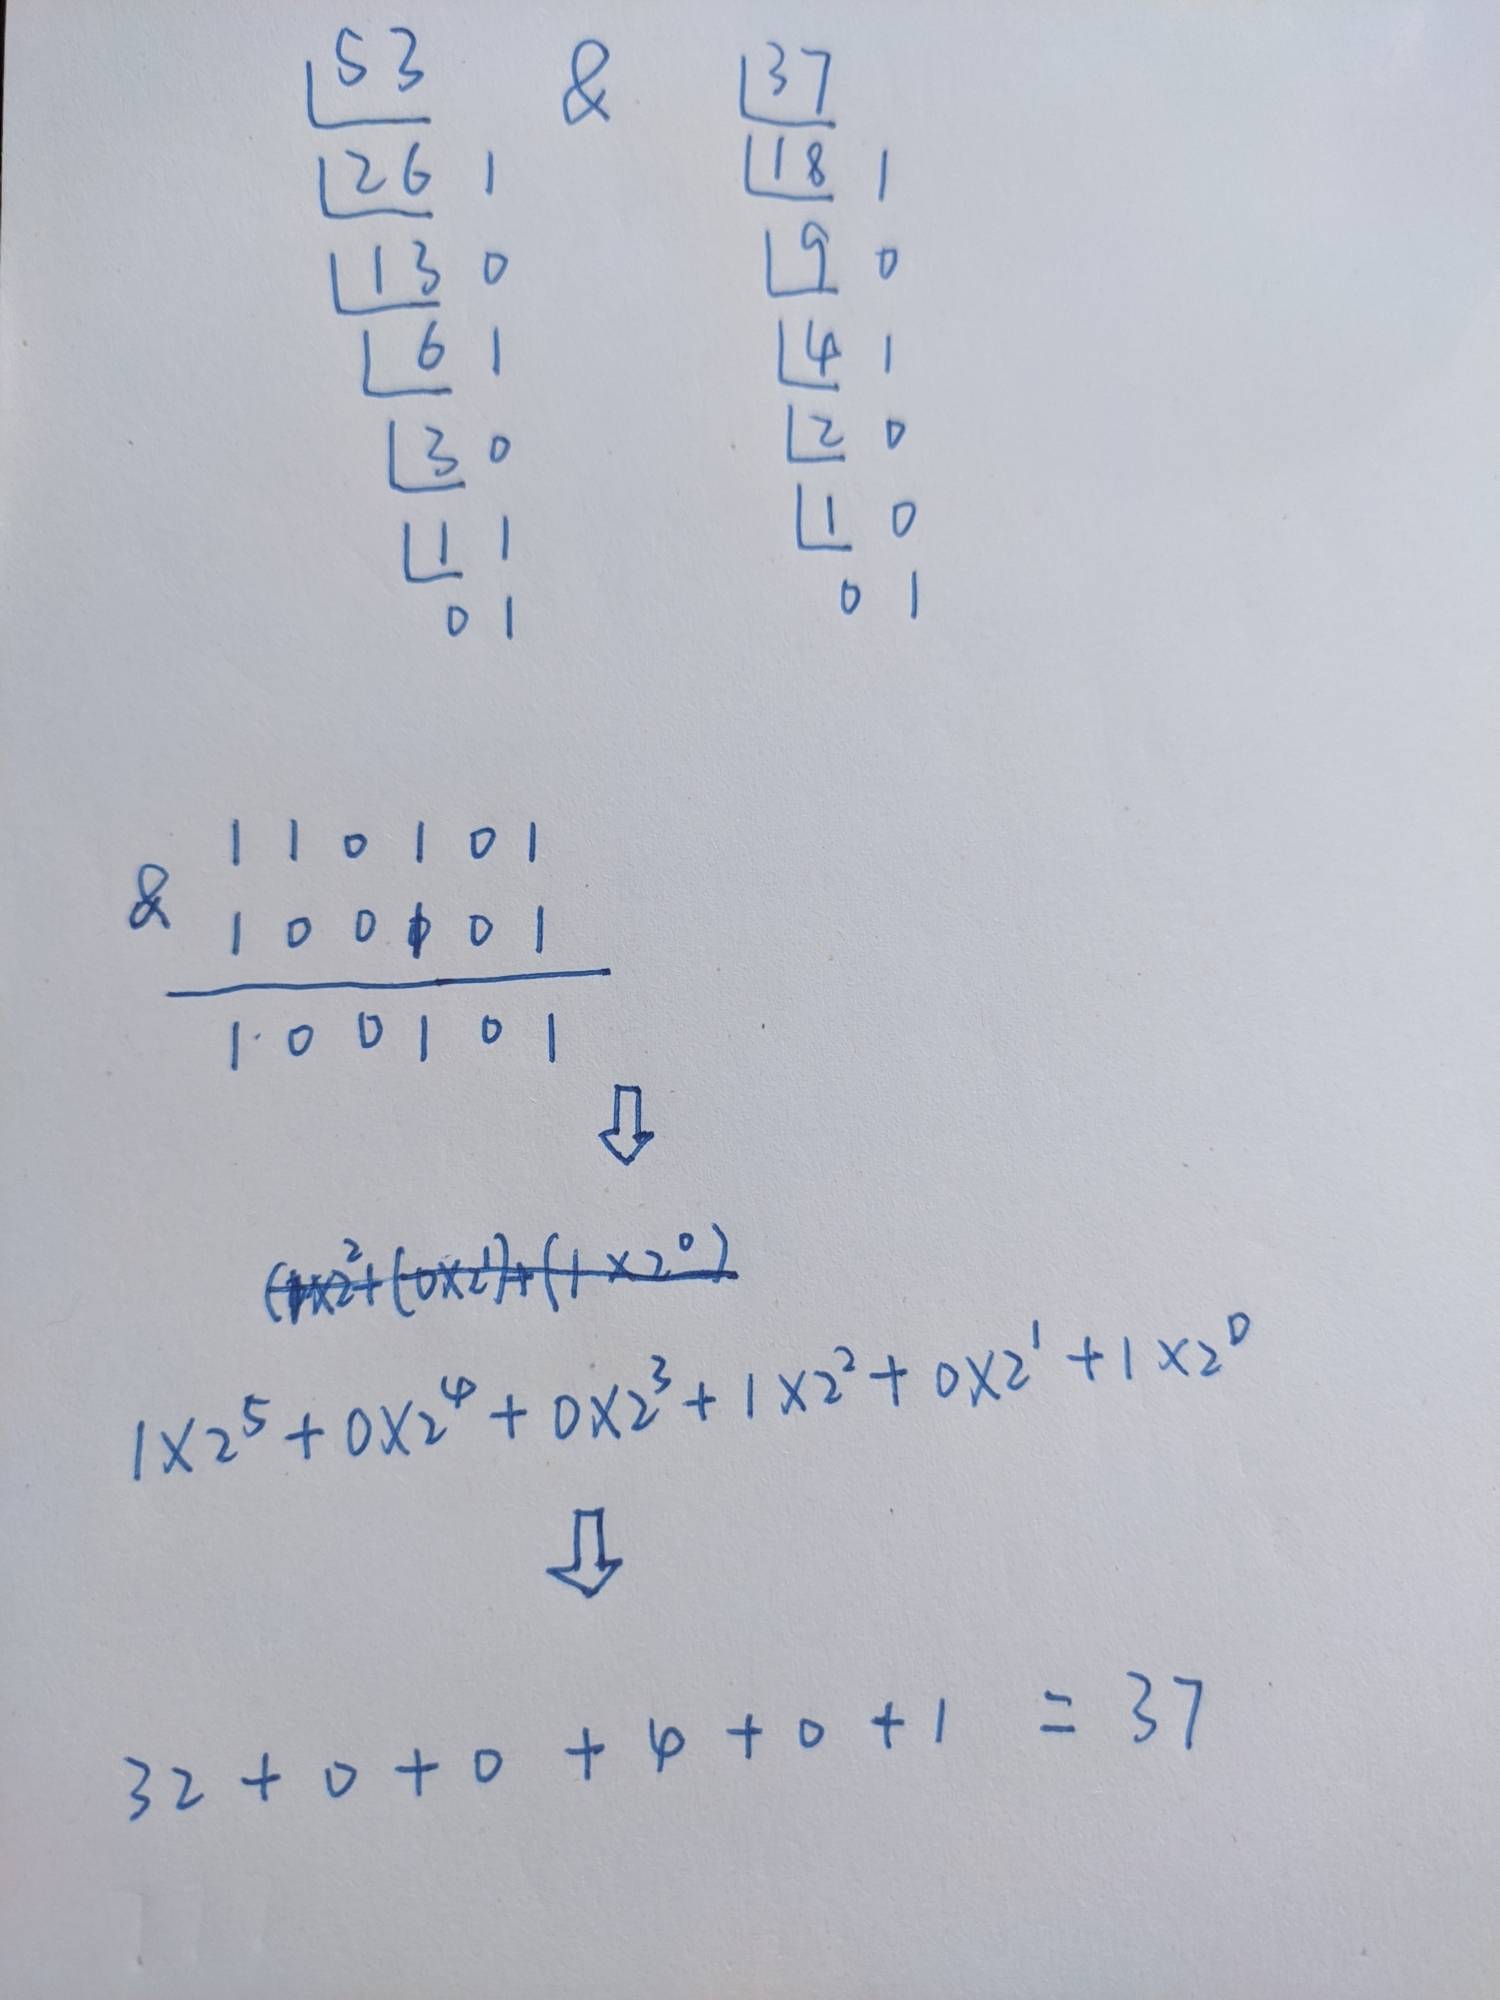 53 & 37
26 1 18 1
13 0 9 0
6 1 4 1
3 0 2 0
1 1 1 0
0 1 0 1
1 1 0 1 0 1
& 1 0 0 1 0 1
1 0 0 1 0 1
⇩
(1×2²+(0×2¹)+(1×2⁰)
1×2⁵+0×2⁴+0×2³+1×2²+0×2¹+1×2⁰
⇩
32+0+0+4+0+1 = 37